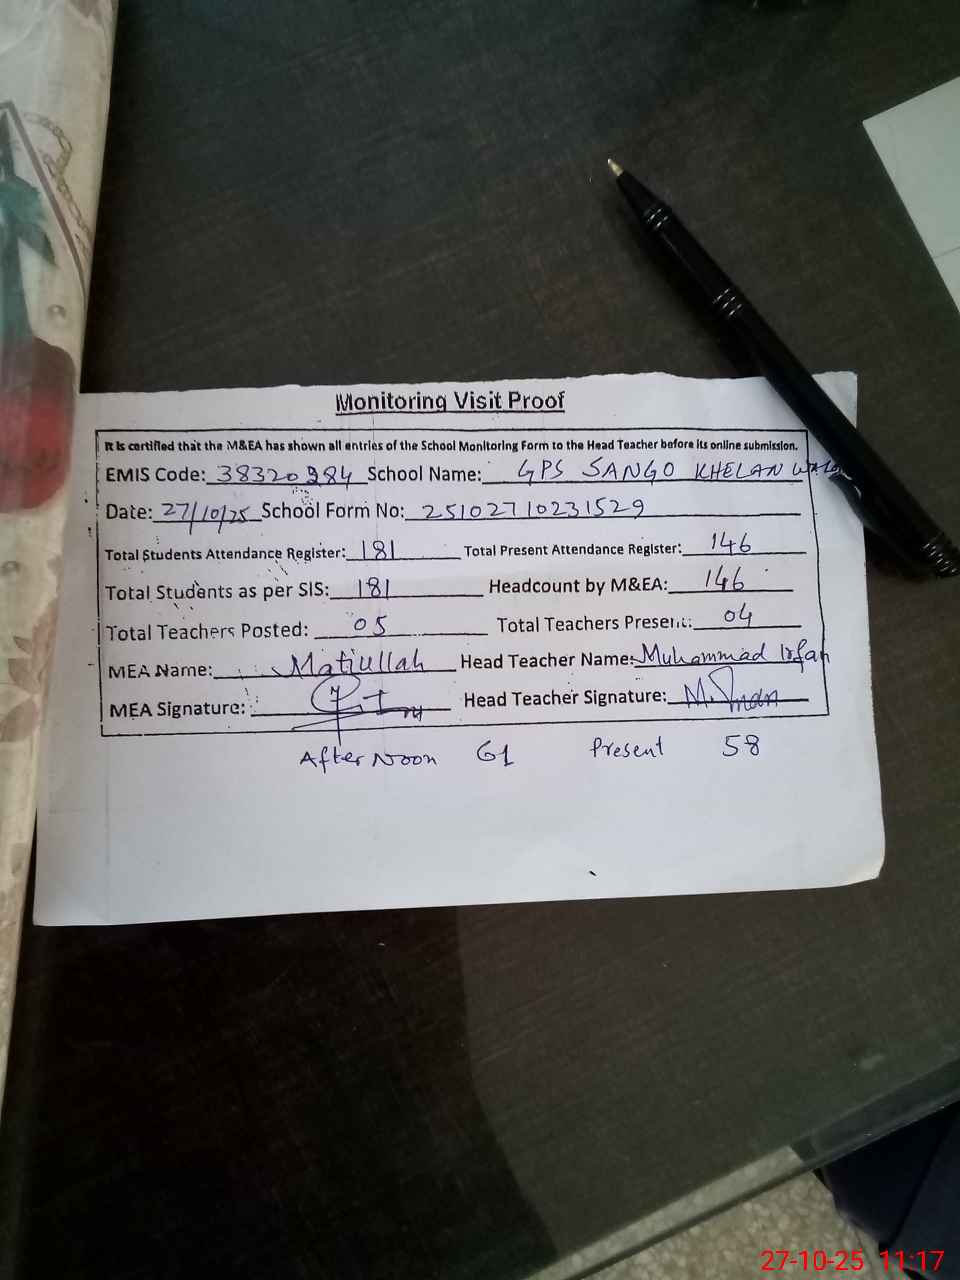 Monitoring Visit Proof
It is certified that the M&EA has shown all entries of the School Monitoring Form to the Head Teacher before its online submission.
EMIS Code: 38320284 School Name: GPS SANGO KHELAN WALA
Date: 27/10/25 School Form No: 25102710231529
Total Students Attendance Register: 181 Total Present Attendance Register: 146
Total Students as per SIS: 181 Headcount by M&EA: 146
Total Teachers Posted: 05 Total Teachers Present: 04
MEA Name: Matiullah Head Teacher Name: Muhammad Irfan
MEA Signature: Head Teacher Signature: M. Irfan
After Noon 61 Present 58
27-10-25 11:17